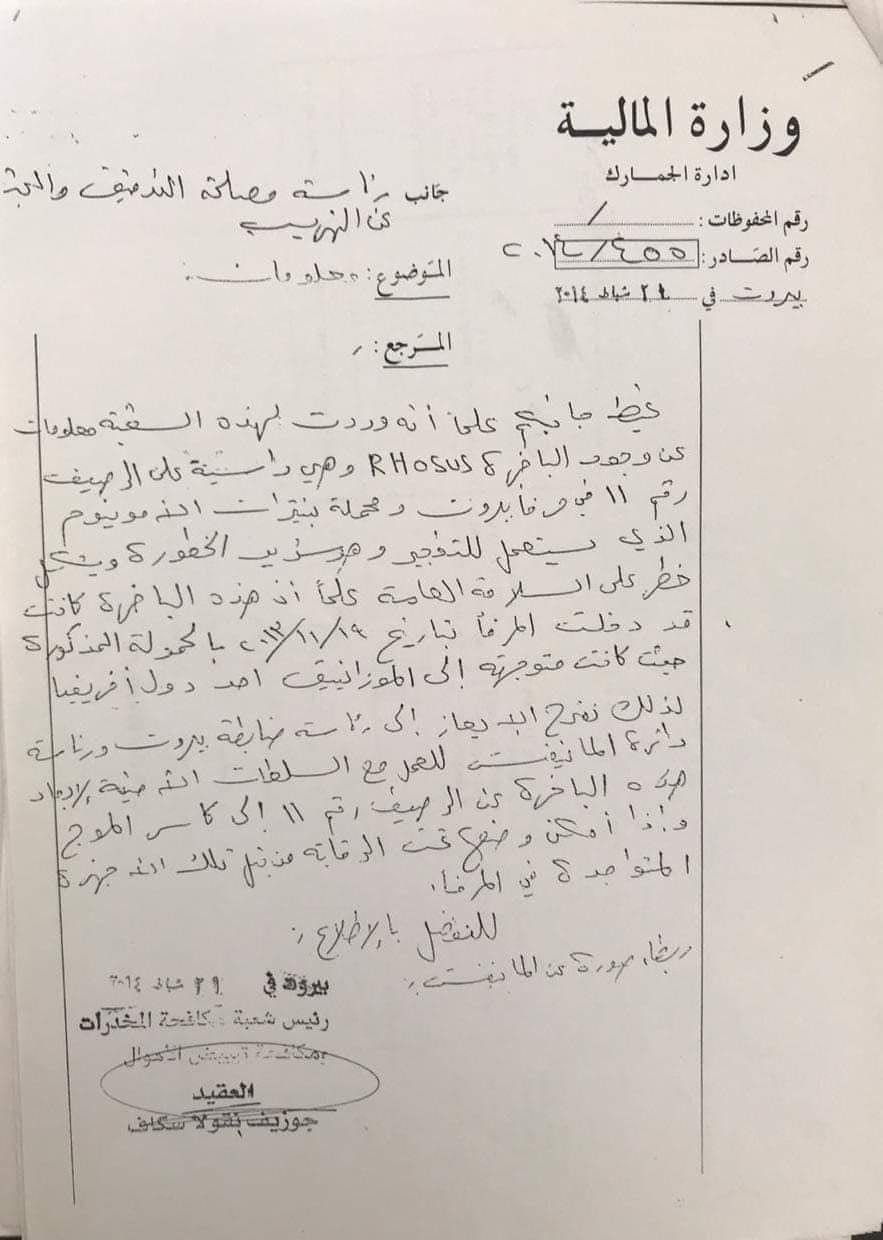 وزارة المالية
ادارة الجمارك
رقم المحفوظات: /
رقم الصادر: ٤٥٥/٢٠١٤
بيروت في ٢١ شباط ٢٠١٤
جانب رئاسة مصلحة التدقيق والبحث
عن التهريب
الموضوع: معلومات
المرجع:
نحيط جانبكم علماً أنه وردت لهذه الشعبة معلومات
عن وجود الباخرة RHOSUS وهي راسية على الرصيف
رقم ١١ في مرفأ بيروت ومحملة بنيترات الأمونيوم
الذي يستعمل للتفجير وهو شديد الخطورة ويشكل
خطر على السلامة العامة علماً أن هذه الباخرة كانت
قد دخلت المرفأ بتاريخ ٢٠١٣/١١/١٩ بالحمولة المذكورة
حيث كانت متوجهة إلى الموزانبيق احد دول أفريقيا
لذلك نقترح الايعاز إلى رئاسة ضابطة بيروت ورئاسة
دائرة المانيفست للعمل مع السلطات الأمنية لإبعاد
هذه الباخرة عن الرصيف رقم ١١ إلى كاسر الموج
وإذا أمكن وضعها تحت الرقابة من قبل تلك الأجهزة
المتواجدة في المرفأ.
للتفضل بالإطلاع
ربطاً صورة عن المانيفست
بيروت في ٢١ شباط ٢٠١٤
رئيس شعبة مكافحة المخدرات
ومكافحة تبييض الأموال
العقيد
جوزيف نقولا سكاف